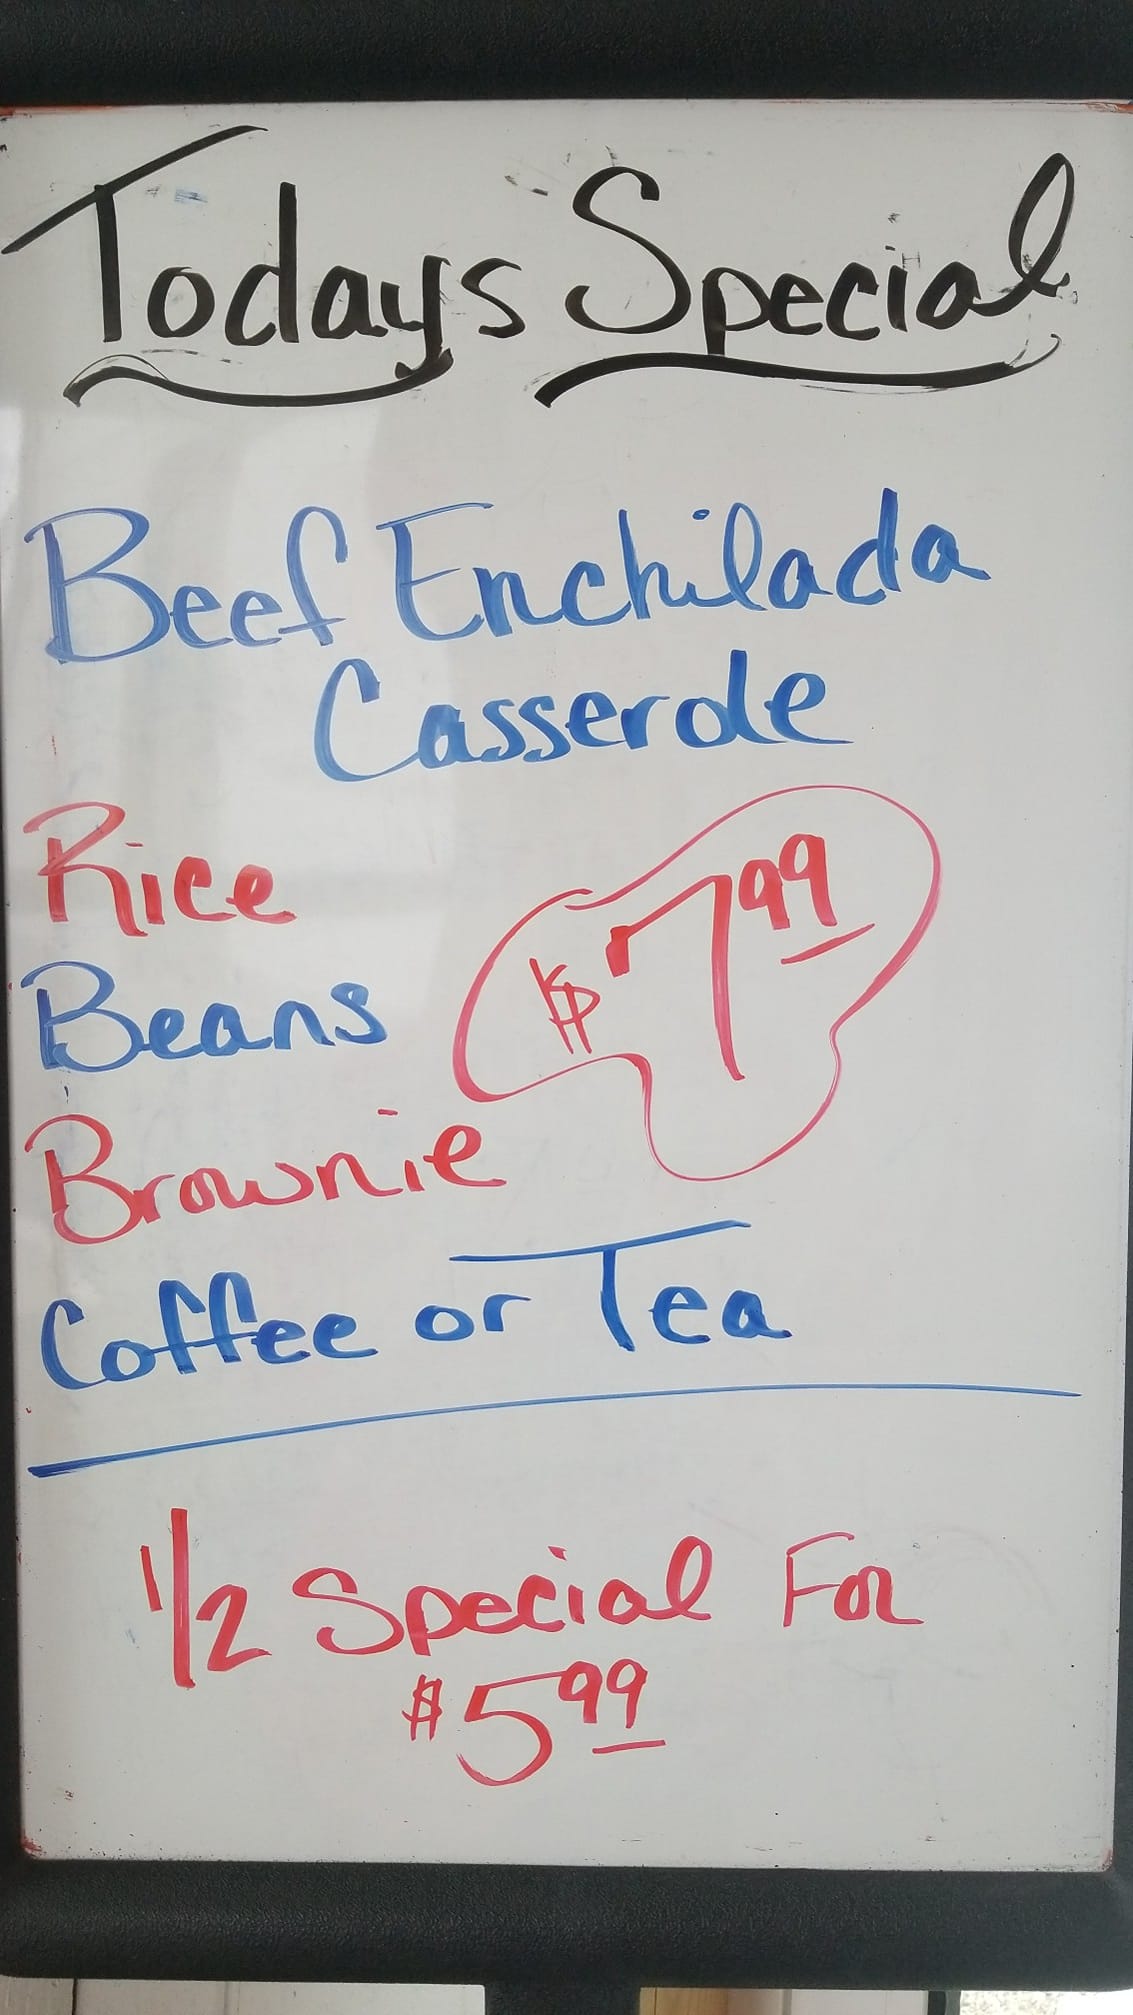 Todays Special
Beef Enchilada
Casserole
Rice
Beans
$7.99
Brownie
Coffee or Tea
1/2 Special For
$5.99